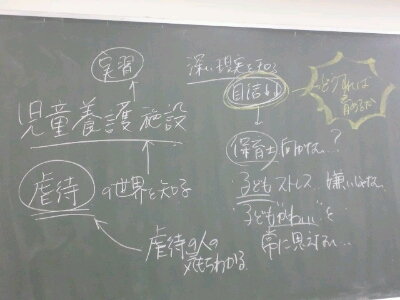 実習
児童養護施設
虐待の世界を知る
虐待の人の
気もちわかる
深い現実を知る
自信
どうすれば
保育士向かない?
子どもストレス 嫌いじゃない
"子どもかわいい"を
常に思えない…